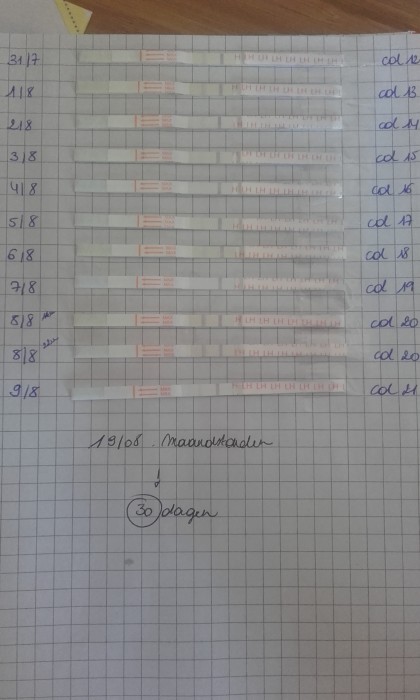 31/7 cd 12
1/8 cd 13
2/8 cd 14
3/8 cd 15
4/8 cd 16
5/8 cd 17
6/8 cd 18
7/8 cd 19
8/8 cd 20
8/8 cd 20
9/8 cd 21
19/08. Maandstonden
30 dagen